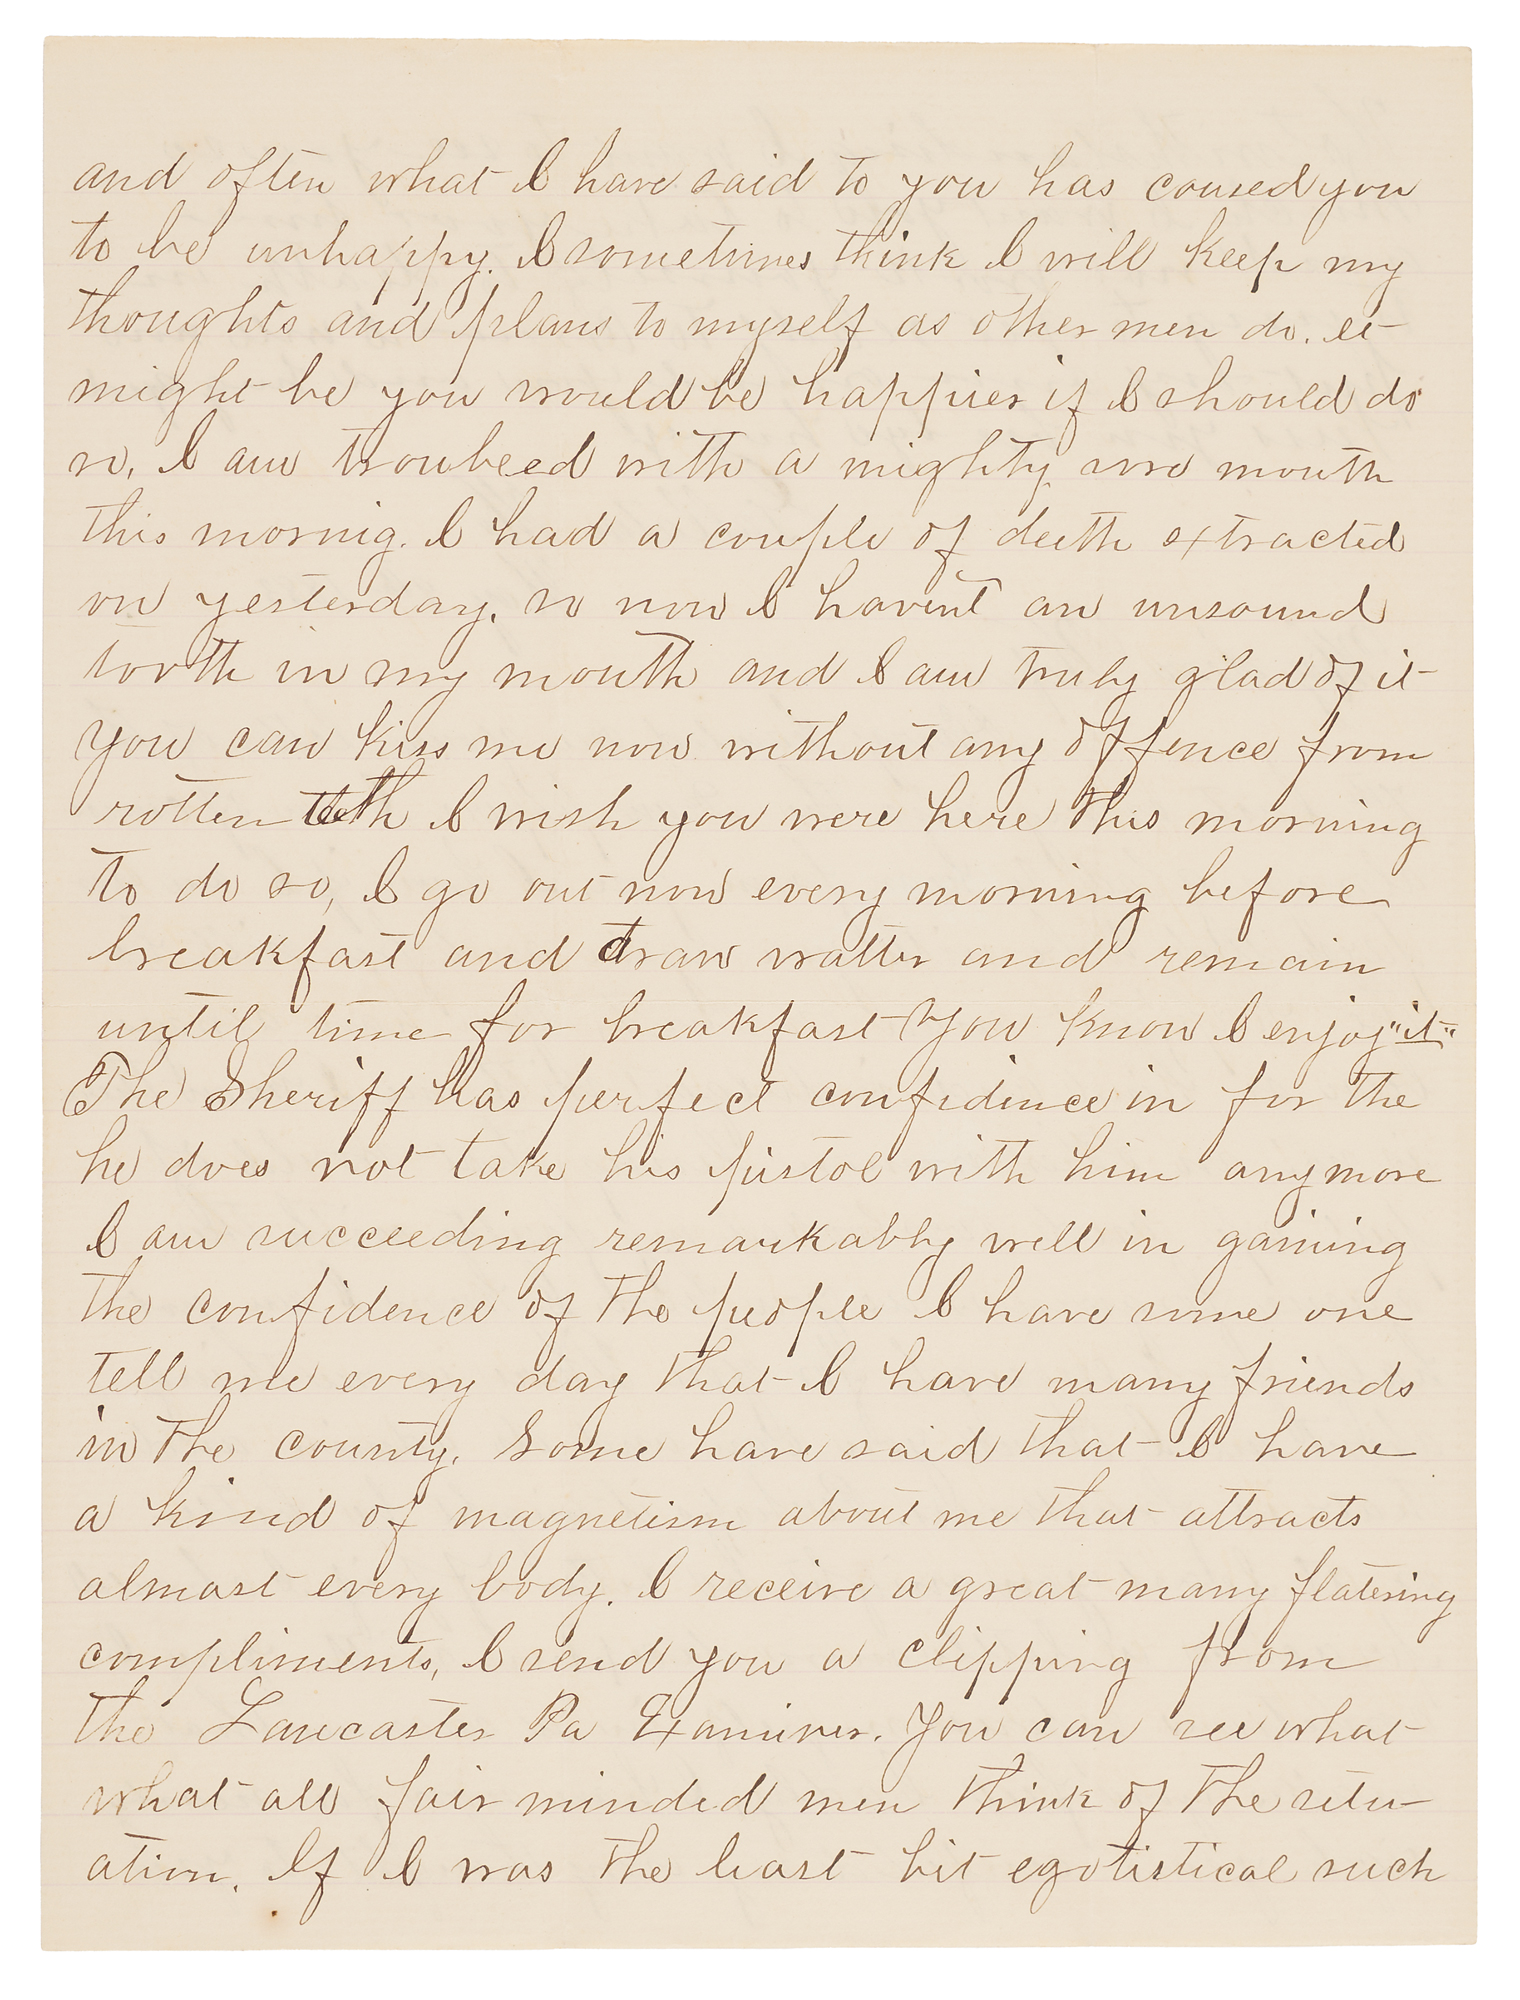 and often what I have said to you has caused you
to be unhappy. I sometimes think I will keep my
thoughts and plans to myself as other men do. It
might be you would be happier if I should do
so, I am troubeed with a mighty sore mouth
this mornig. I had a couple of deeth extracted
on yesterday, so now I havint an unsound
tooth in my mouth and I am truly glad of it
You can kiss me now without any offence from
rotten teeth I wish you were here this morning
to do so, I go out now every morning before
breakfast and draw watter and remain
until time for breakfast You know I enjoy "it"
The Sheriff has perfect confidence in for the
he does not take his pistol with him anymore
I am succeeding remarkably well in gaining
the confidence of the people I have some one
tell me every day that I have many friends
in the county. Some have said that I have
a kind of magnetism about me that attracts
almost every body. I receive a great many flatering
compliments, I send you a clipping from
the Lancaster Pa Examiner. You can see what
what all fair minded men think of the situ-
ation. If I was the least bit egotistical such